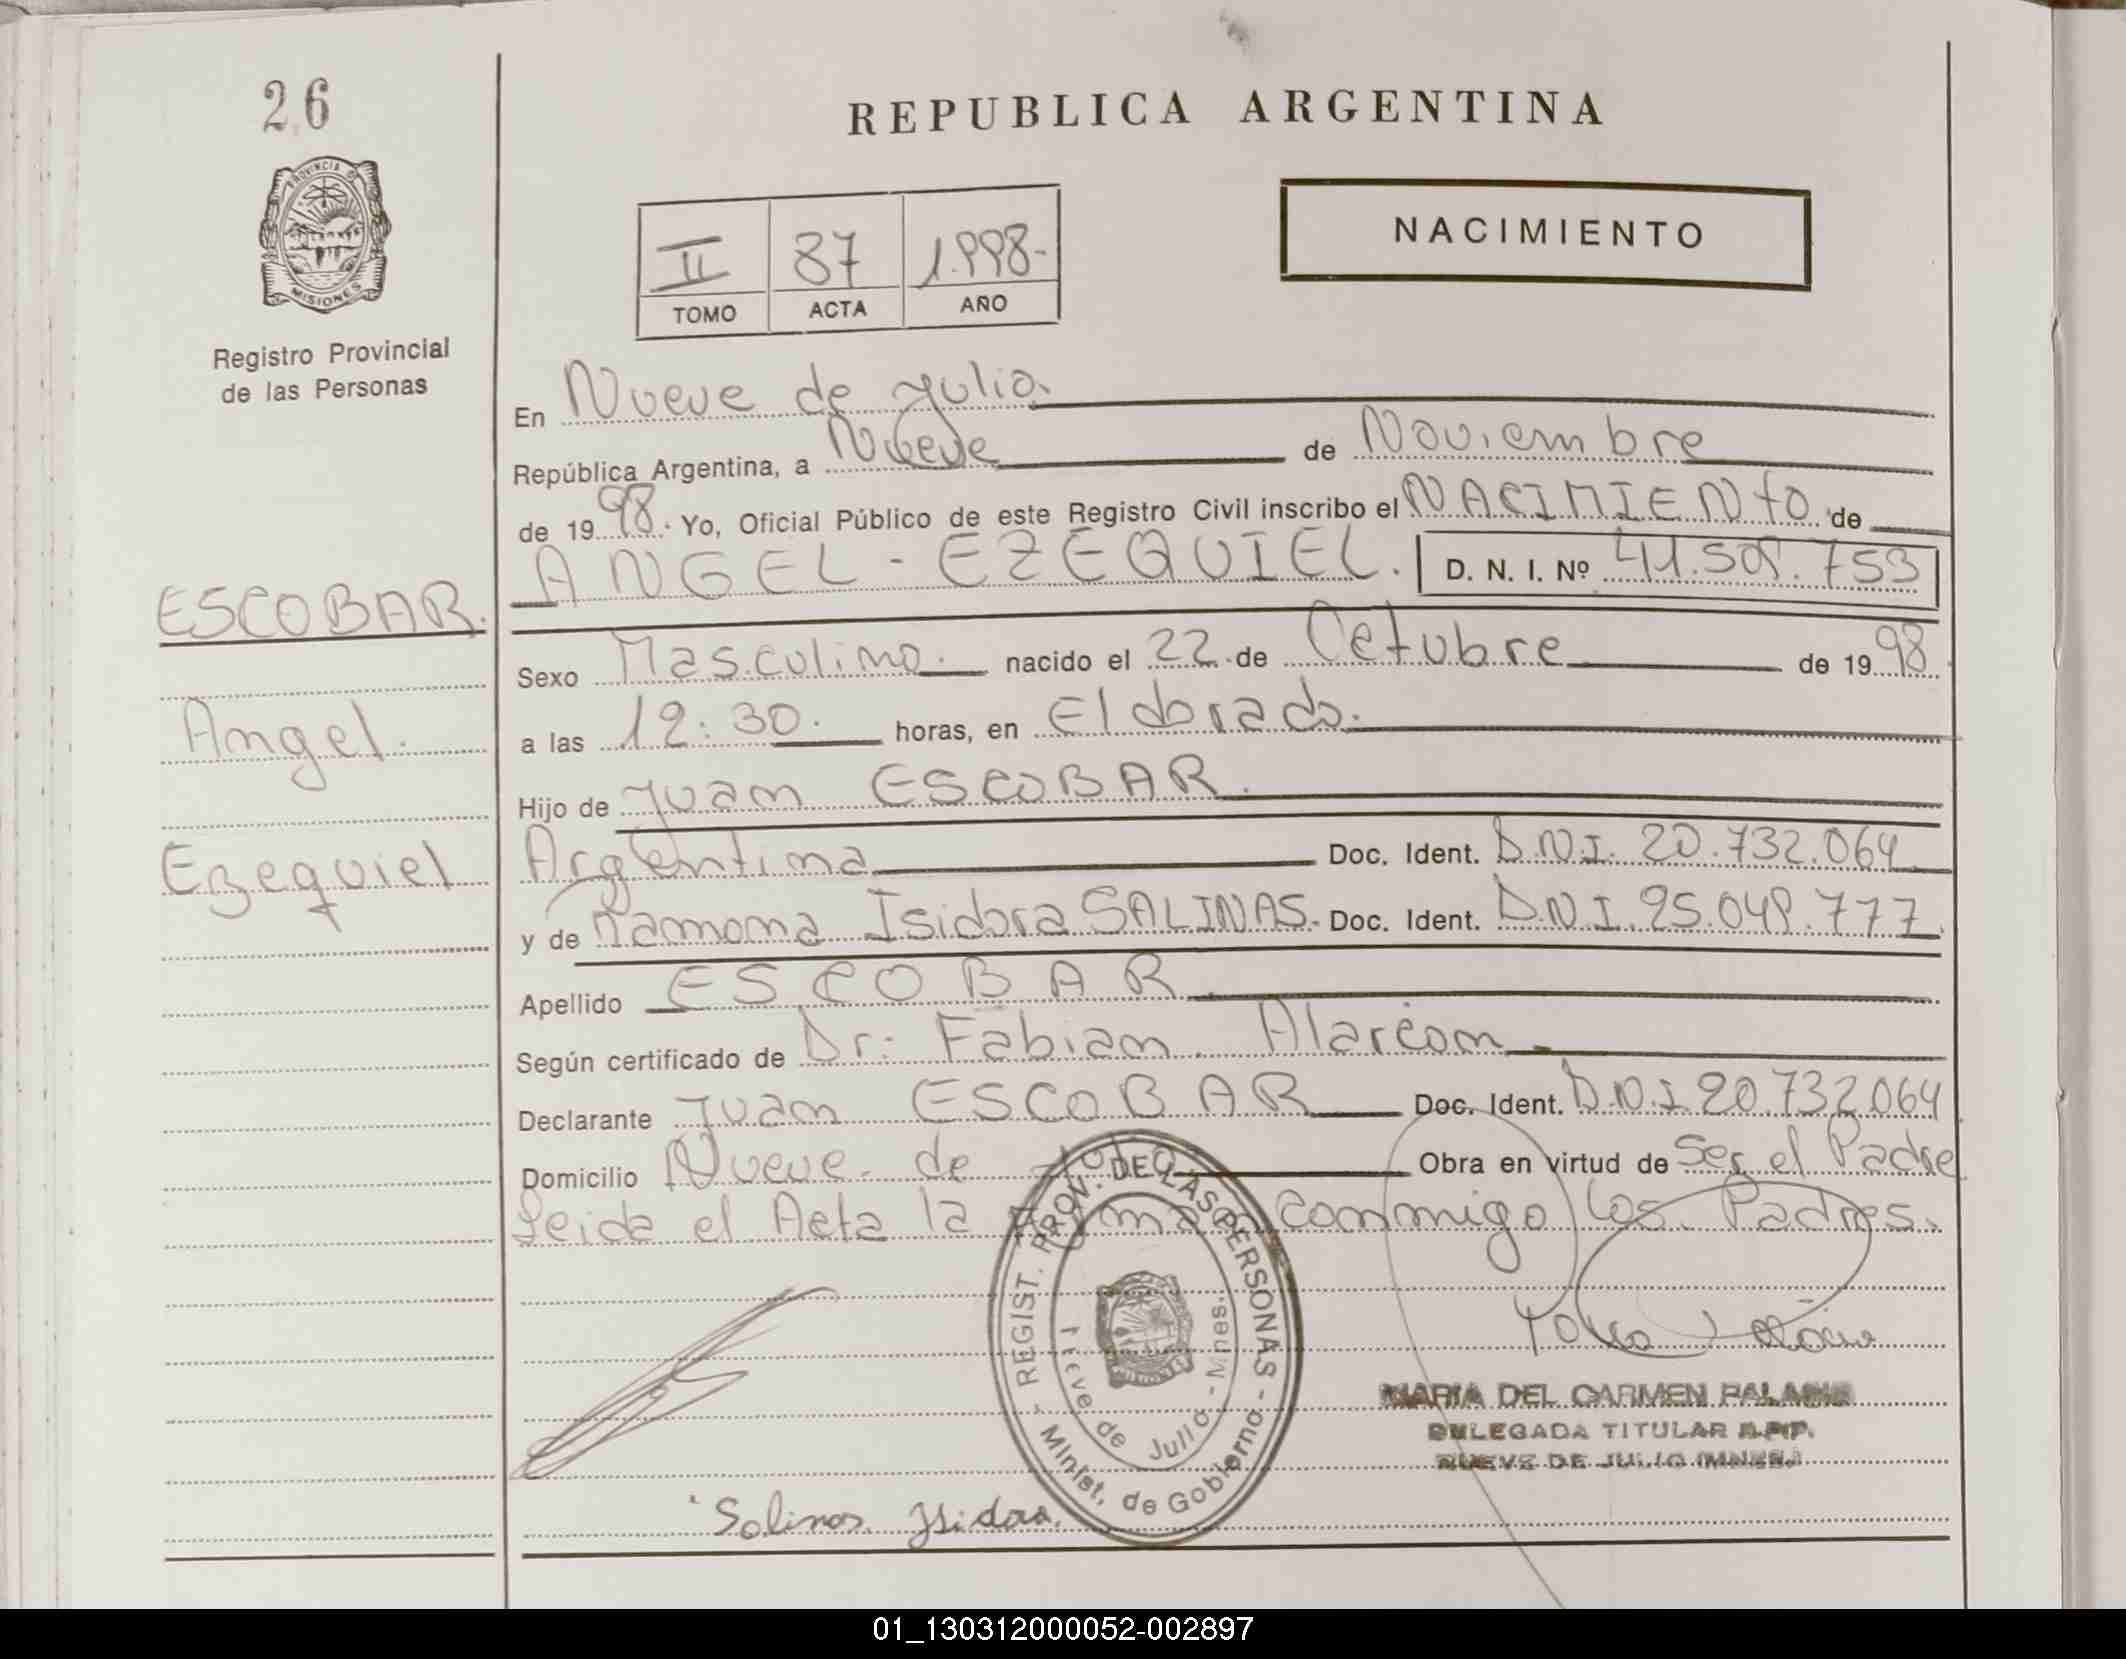 26
REPUBLICA ARGENTINA
PROVINCIA D
MISIONES
NACIMIENTO
II 87 1.998-
TOMO ACTA AÑO
Registro Provincial
de las Personas
En Nueve de Julio.
República Argentina, a Nueve de Noviembre
de 1998. Yo, Oficial Público de este Registro Civil inscribo el NACIMIENTO de
ANGEL - EZEQUIEL. D. N. I. Nº 41.505.753
ESCOBAR.
Sexo Masculino. nacido el 22 de Octubre de 1998.
Angel.
a las 12:30. horas, en Eldorado.
Hijo de Juan ESCOBAR.
Ezequiel
Argentina Doc. Ident. D.N.I. 20.732.064
y de Ramona Isidora SALINAS. Doc. Ident. D.N.I. 25.049.777
Apellido ESCOBAR.
Según certificado de Dr: Fabian Alarcon
Declarante Juan ESCOBAR Doc. Ident. D.N.I 20.732.064
Domicilio Nueve de Julio Obra en virtud de Ser el Padre
Leida el Acta la firman conmigo los Padres.
REGIST. PROV. DE LAS PERSONAS - Minist. de Gobierno -
Nueve de Julio - Mnes.
MISIONES
MARIA DEL CARMEN
DELEGADA TITULAR R.P.P.
NUEVE DE JULIO (MNES.)
Salinas Isidora.
01_130312000052-002897